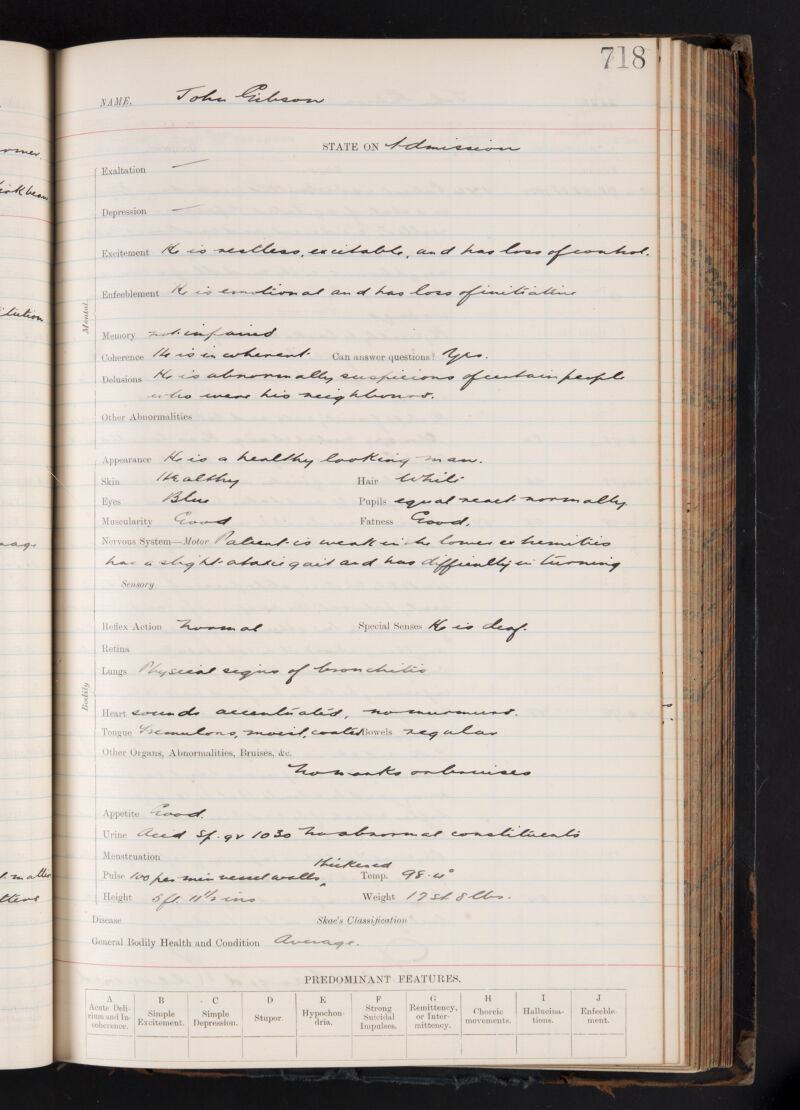 718
NAME. John Gibson
STATE ON Admission
Mental.
Exaltation —
Depression —
Excitement He is restless, excitable, and has loss of control.
Enfeeblement He is emotional and has loss of initiative
Memory not impaired
Coherence He is incoherent. Can answer questions? Yes.
Delusions He is abnormally suspicious of certain people
who were his neighbours.
Other Abnormalities
Bodily
Appearance He is a healthy looking man.
Skin Healthy Hair White
Eyes Blue Pupils equal react normally
Muscularity Good Fatness Good.
Nervous System—Motor Patient is weak in the lower extremities
has a slight ataxic gait and has difficulty in turning
Sensory
Reflex Action Normal Special Senses He is deaf.
Retina
Lungs Physical signs of bronchitis
Heart sounds accentuated, no murmurs.
Tongue Tremulous, moist, coated Bowels regular
Other Organs, Abnormalities, Bruises, &c.
No marks or bruises
Appetite Good.
Urine Acid Sp. gr 1030 No abnormal constituents
Menstruation
Pulse 100 per min vessel walls thickened Temp. 98.4°
Height 5 ft. 11 1/2 ins Weight 17 st. 8 lbs.
Disease Skae's Classification
General Bodily Health and Condition Average.
PREDOMINANT FEATURES.
A B C D E F G H I J
Acute Delirium and Incoherence. Simple Excitement. Simple Depression. Stupor. Hypochondria. Strong Suicidal Impulses. Remittency, or Intermittency. Choreic movements. Hallucinations. Enfeeblement.